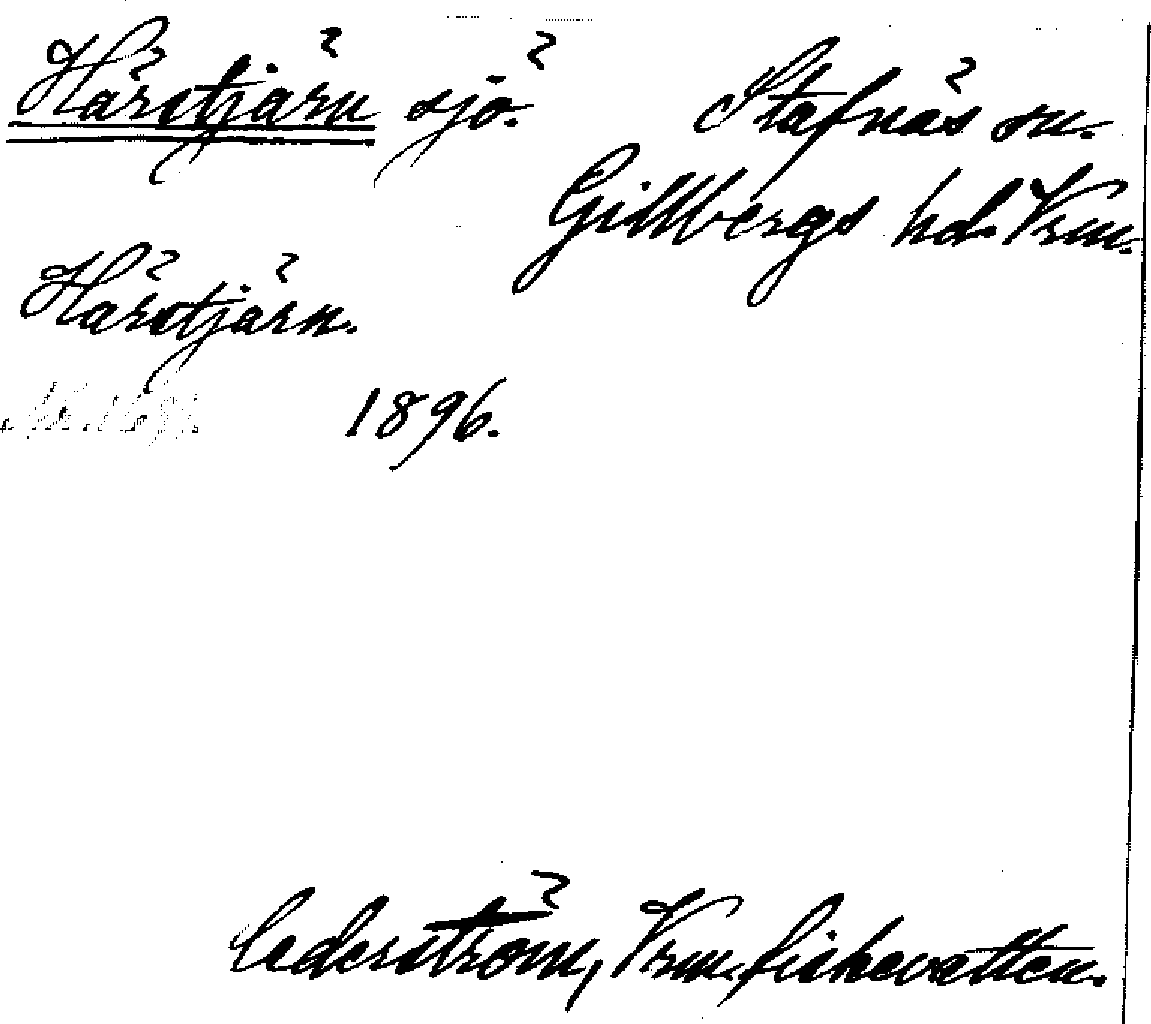 Härstjärn sjö. Stafnäs sn.
Gillbergs hd. Vrm.
Härstjärn.
1896.
Cederström, Vrm. fiskevatten.